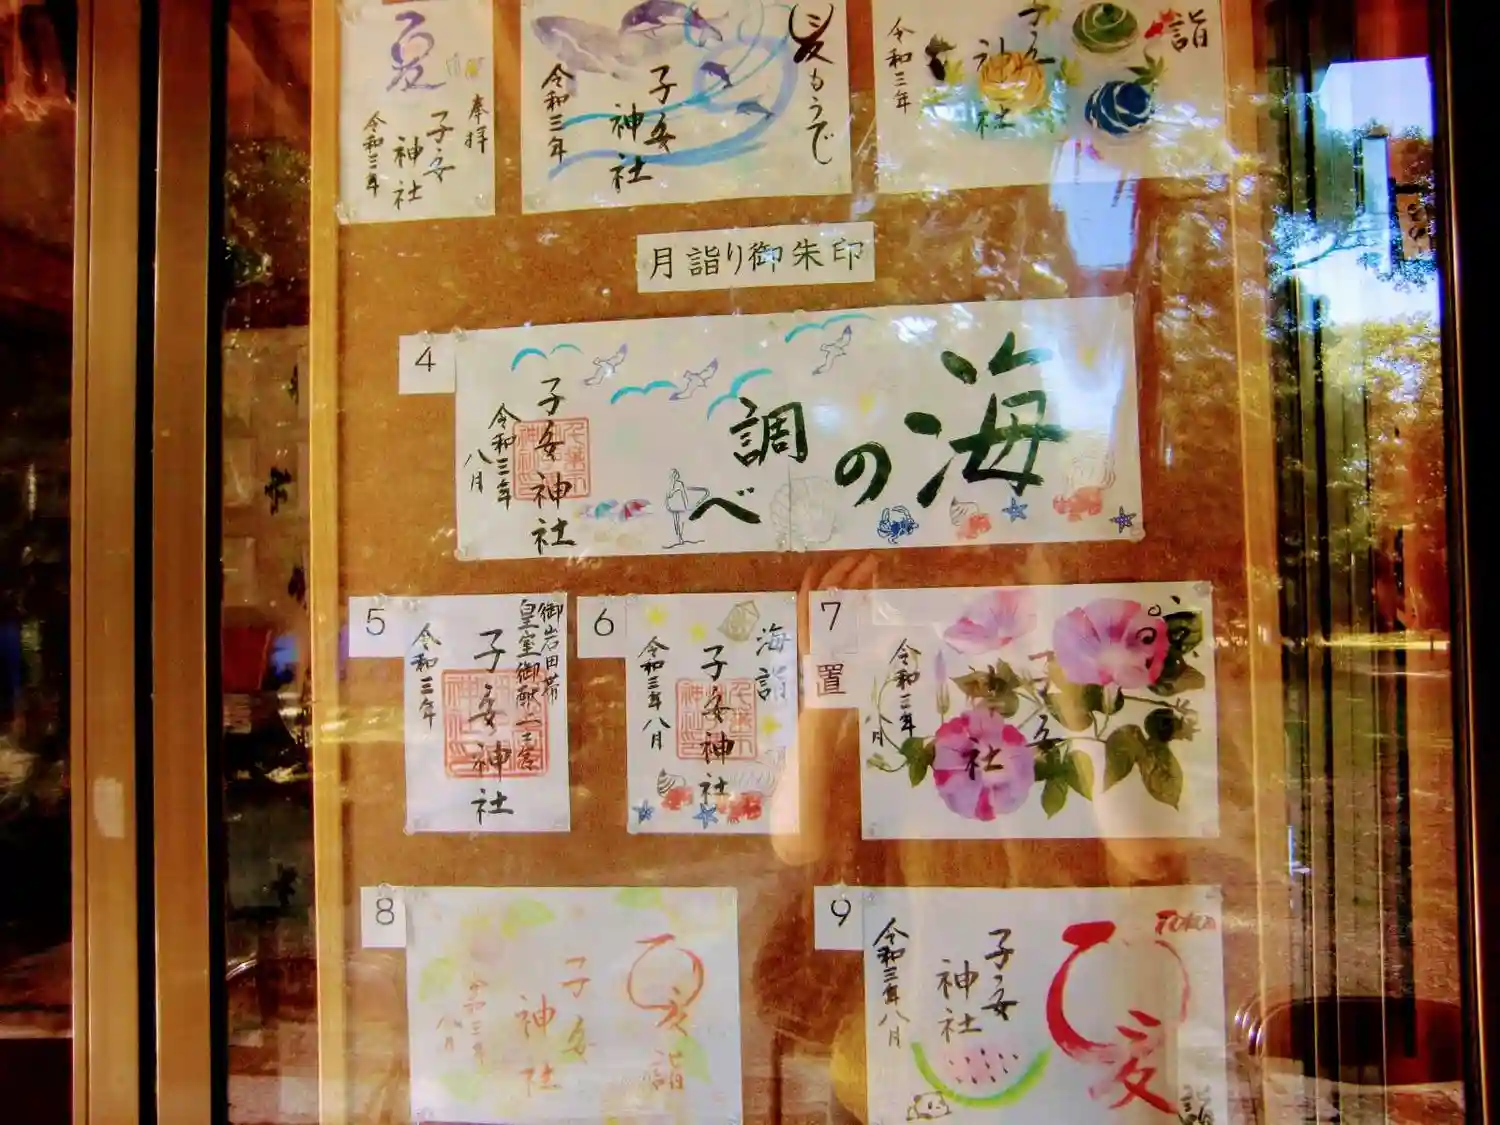 夏
奉拝
子安
神社
令和三年
夏もうで
子安
神社
令和三年
詣
子安
神社
令和三年
月詣り御朱印
4
海の調べ
子安神社
令和三年
八月
5
御岩田帯
皇室御献上之宮
子安神社
令和三年
6
海詣
子安神社
令和三年八月
7
置
子安
神社
令和三年
八月
8
夏詣
子安
神社
令和三年
八月
9
夏詣
子安
神社
令和三年八月